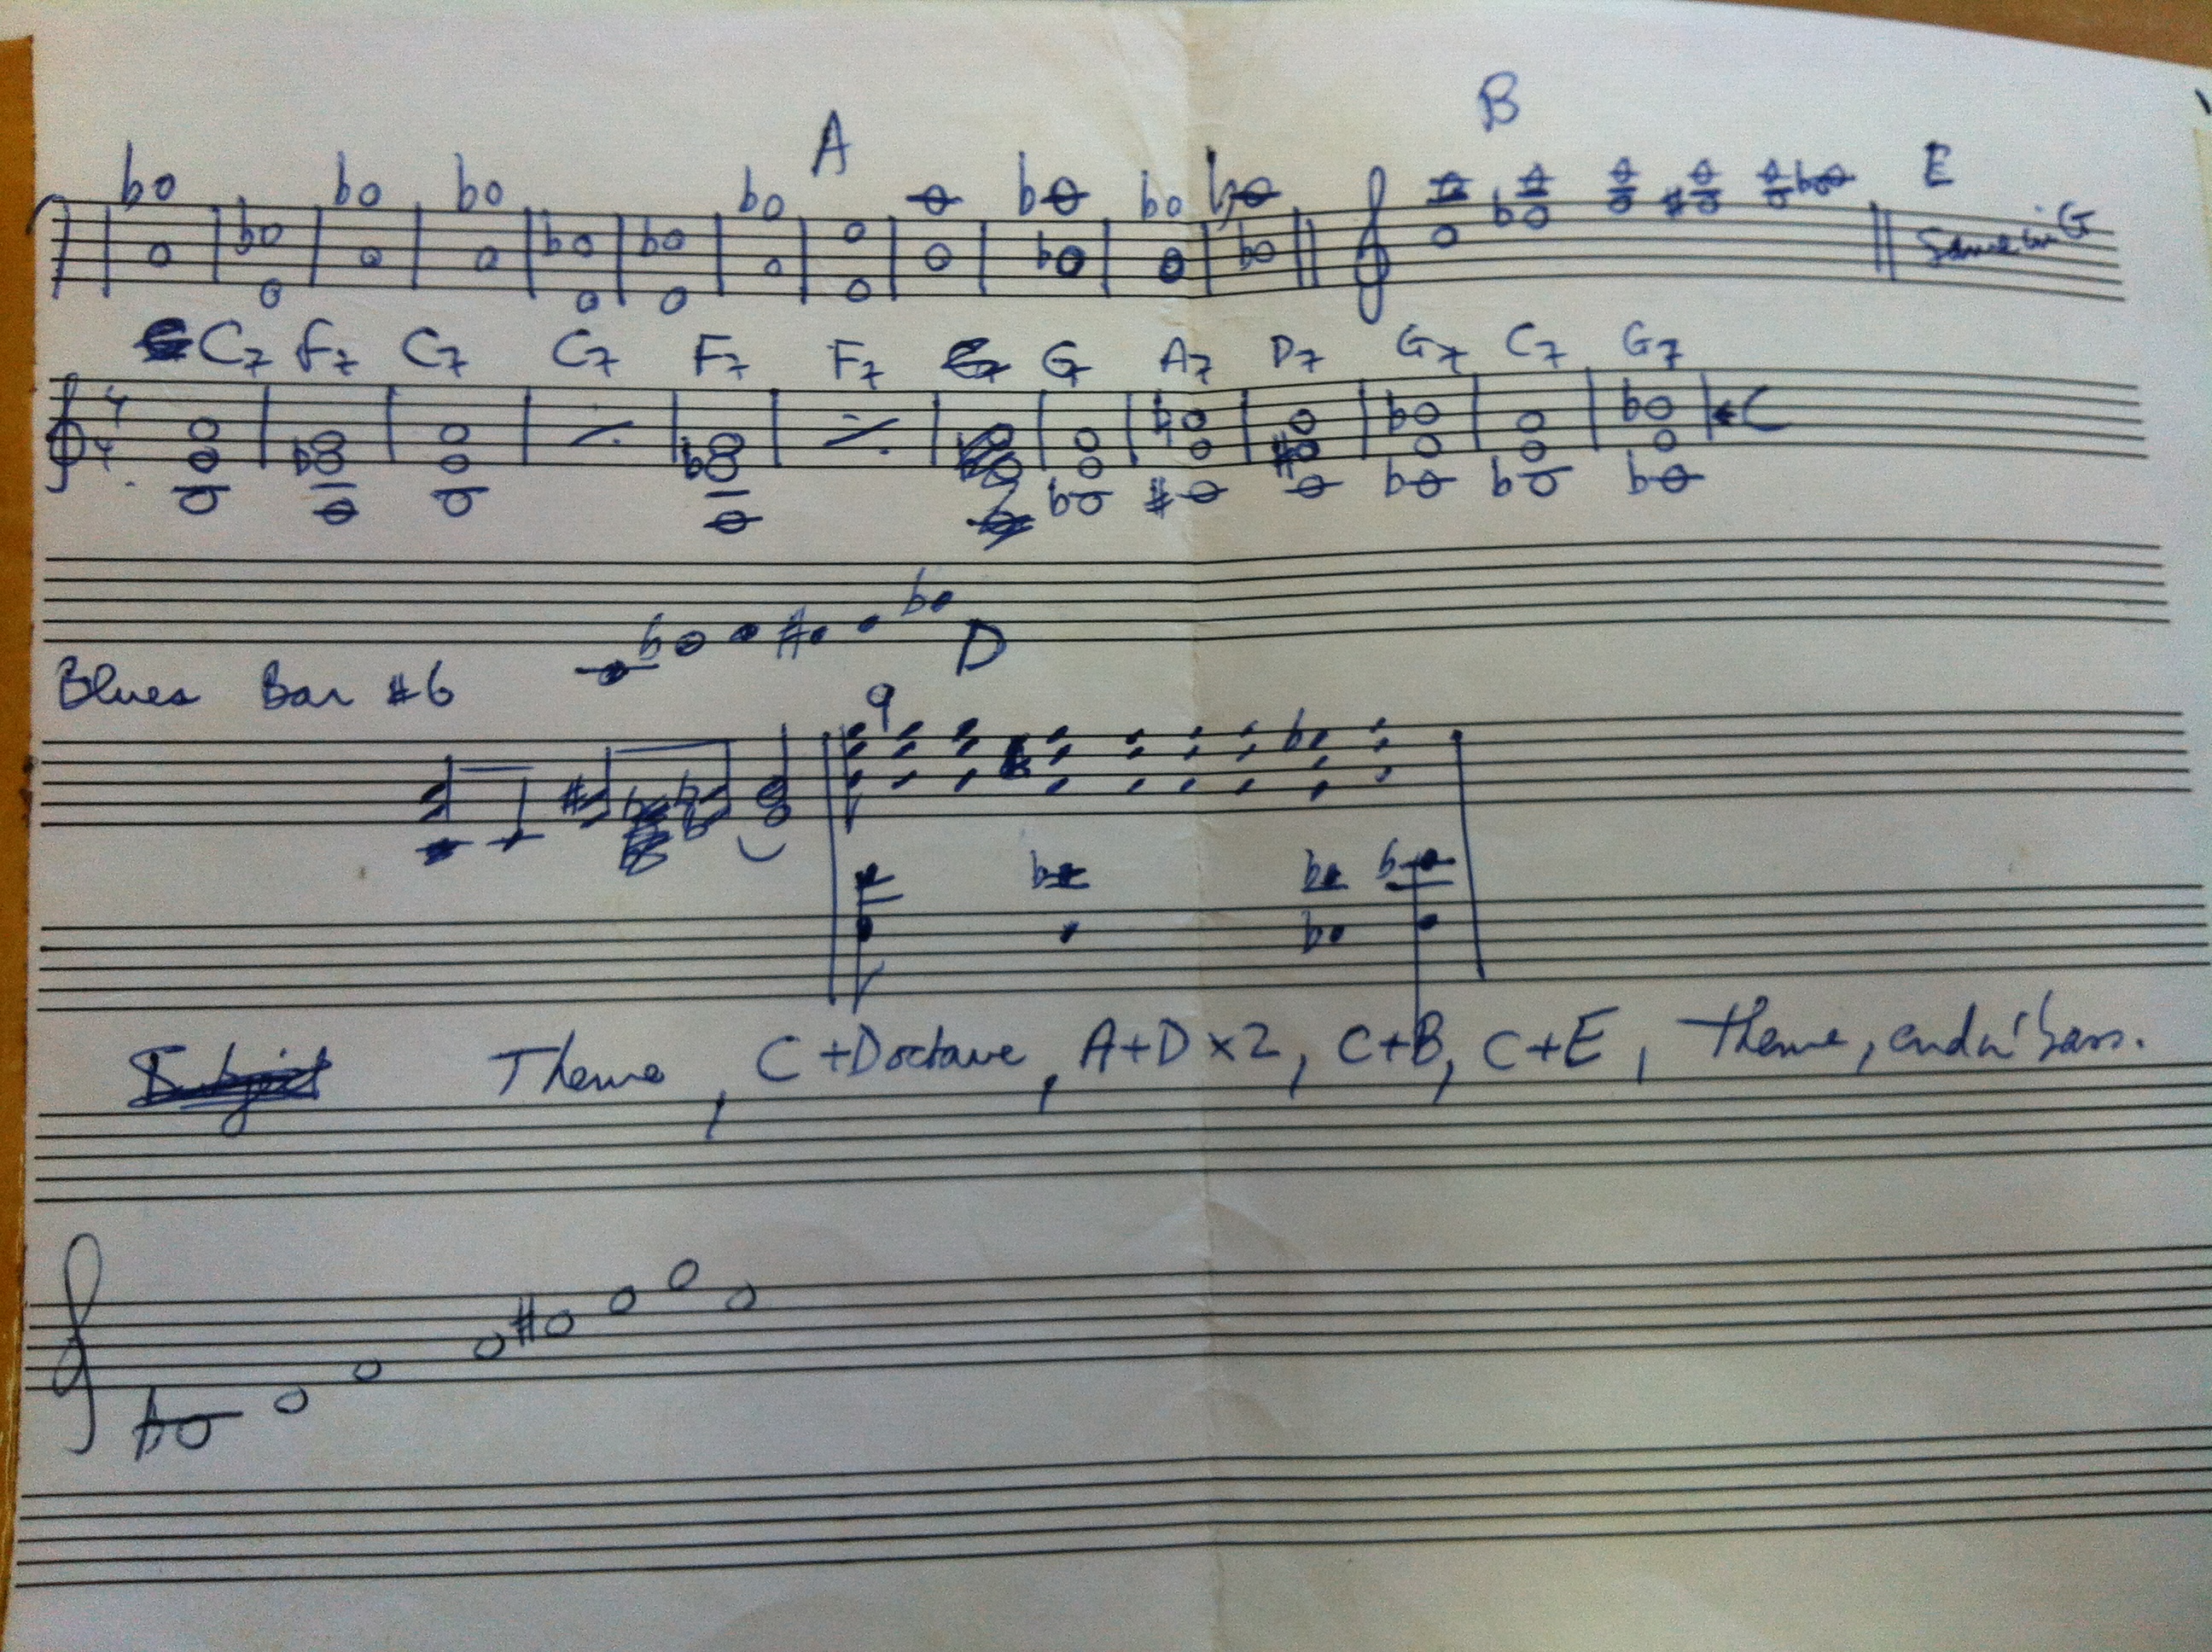 A B
E
Same in G
C7 F7 C7 C7 F7 F7 G A7 D7 G7 C7 G7
4
4
C
D
Blues Bar #6
9
Theme, C+Doctave, A+D x2, C+B, C+E, Theme, end w' bass.